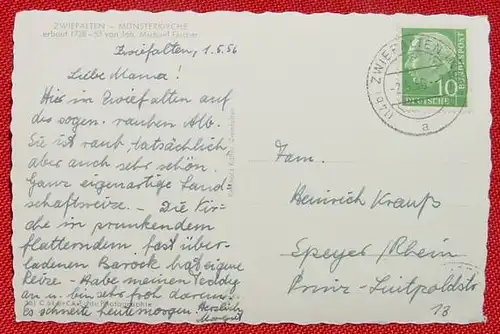 ZWIEFALTEN – MÜNSTERKIRCHE
erbaut 1738-53 von Joh. Michael Fischer
Zwiefalten, 1.5.56
Liebe Mama!
Hier in Zwiefalten auf
der sogen. rauhen Alb.
Sie ist rauh tatsächlich
aber auch sehr schön.
Ganz eigenartige Land
schaftsreize. – Die Kir-
che in prunkendem
flatterndem, fast über-
ladenen Barock hat eigene
Reize – Habe meinen Teddy
an u. bin sehr froh darum.
Es schneite heute morgen. Herzlichst
Fam.
Heinrich Krauß
Speyer/Rhein
Prinz-Luitpoldstr
13
ZWIEFALTEN
a
10
DEUTSCHE
BUNDESPOST